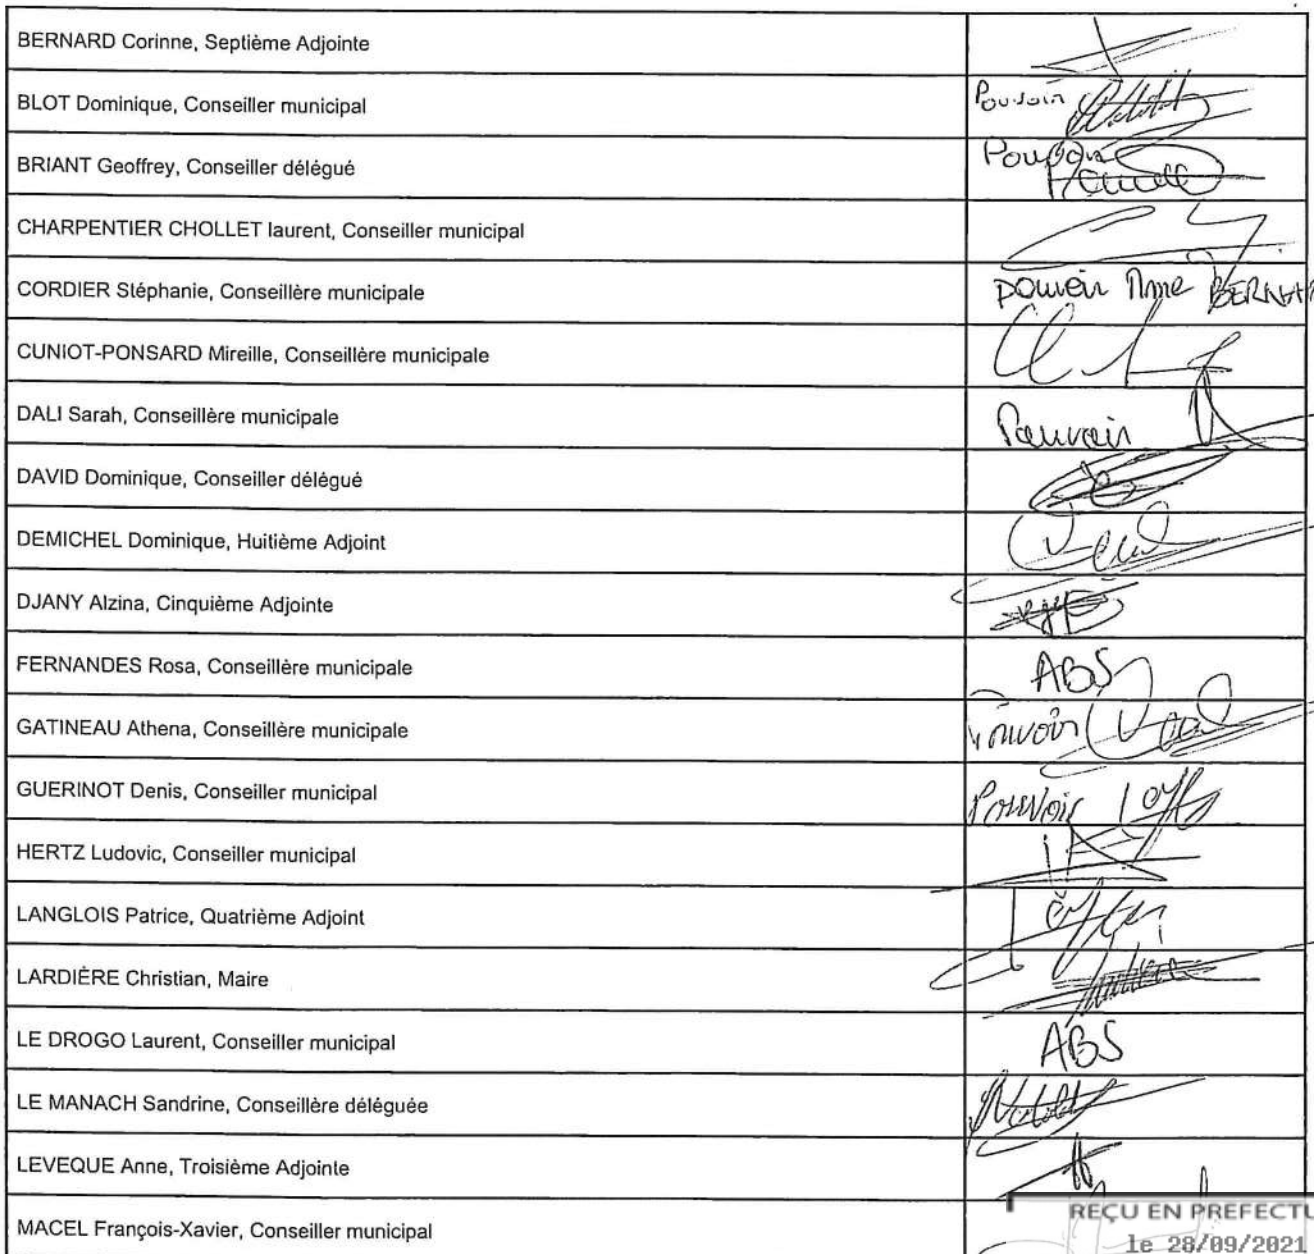 BERNARD Corinne, Septième Adjointe
BLOT Dominique, Conseiller municipal
Pouvoir
BRIANT Geoffrey, Conseiller délégué
CHARPENTIER CHOLLET laurent, Conseiller municipal
CORDIER Stéphanie, Conseillère municipale
pouvoir Mme BERNAR
CUNIOT-PONSARD Mireille, Conseillère municipale
DALI Sarah, Conseillère municipale
Pouvoir
DAVID Dominique, Conseiller délégué
DEMICHEL Dominique, Huitième Adjoint
DJANY Alzina, Cinquième Adjointe
FERNANDES Rosa, Conseillère municipale
ABS
GATINEAU Athena, Conseillère municipale
Pouvoir
GUERINOT Denis, Conseiller municipal
Pouvoir
HERTZ Ludovic, Conseiller municipal
LANGLOIS Patrice, Quatrième Adjoint
LARDIÈRE Christian, Maire
LE DROGO Laurent, Conseiller municipal
ABS
LE MANACH Sandrine, Conseillère déléguée
LEVEQUE Anne, Troisième Adjointe
MACEL François-Xavier, Conseiller municipal
REÇU EN PREFECTU
le 28/09/2021